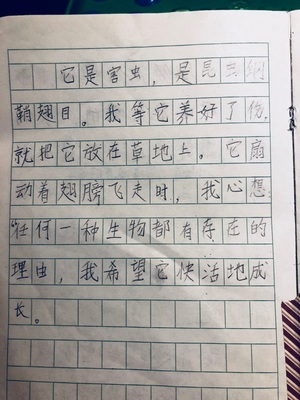 它是害虫，是昆虫纲
鞘翅目。我等它养好了伤，
就把它放在草地上。它扇
动着翅膀飞走时，我心想
“任何一种生物都有存在的
理由，我希望它快活地成
长。